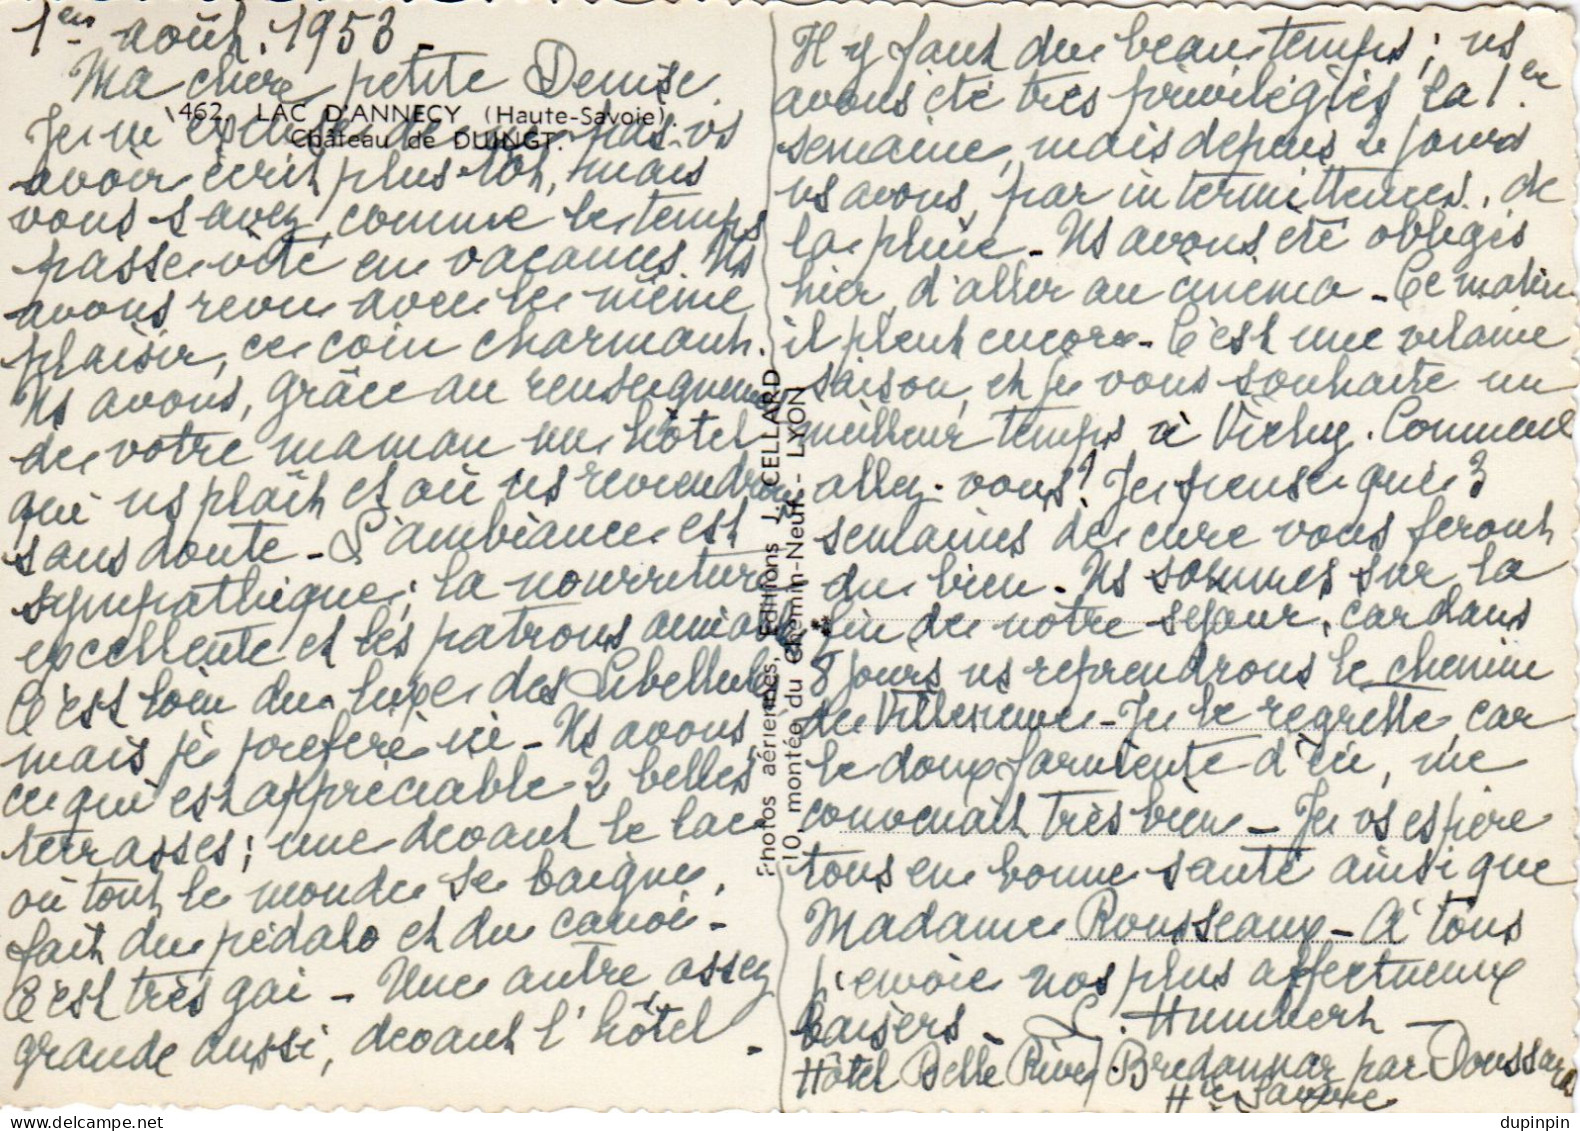 1er août 1953
Ma chère petite Denise.
462. LAC D'ANNECY (Haute-Savoie).
Château de DUINGT.
Je m'excuse de ne pas vs
avoir écrit plus tôt, mais
vous savez, comme le temps
passe vite en vacances. Ns
avons revu avec le même
plaisir, ce coin charmant.
Ns avons, grâce au renseignement
de votre maman un hôtel
qui ns plaît et où ns reviendrons
sans doute - L'ambiance est
sympathique; la nourriture
excellente et les patrons aimables
C'est loin du luxe des Libellules
mais je préfère ici - Ns avons
ce qui est appréciable 2 belles
terrasses; une devant le lac
où tout le monde se baigne,
fait du pédalo et du canoë -
C'est très gai - Une autre assez
grande aussi, devant l'hôtel.
Photos aériennes, Editions J. CELLARD
10, montée du Chemin-Neuf - LYON
Il y fait du beau temps; ns
avons été très privilégiés la 1ère
semaine, mais depuis 2 jours
ns avons, par intermittences, de
la pluie - Ns avons été obligés
hier, d'aller au cinéma - Ce matin
il pleut encore - C'est une vilaine
saison, et je vous souhaite un
meilleur temps à Vichy. Comment
allez-vous? Je pense que 3
semaines de cure vous feront
du bien - Ns sommes sur la
fin de notre séjour, car dans
8 jours ns reprendrons le chemin
de Villeneuve - Je le regrette car
le doux farniente d'ici, me
convenait très bien - Je vs espère
tous en bonne santé ainsi que
Madame Rousseaux - A tous
j'envoie nos plus affectueux
baisers - L. Humbert -
Hôtel Belle Rive Bredannaz par Doussard
Hte Savoie
dupinpin